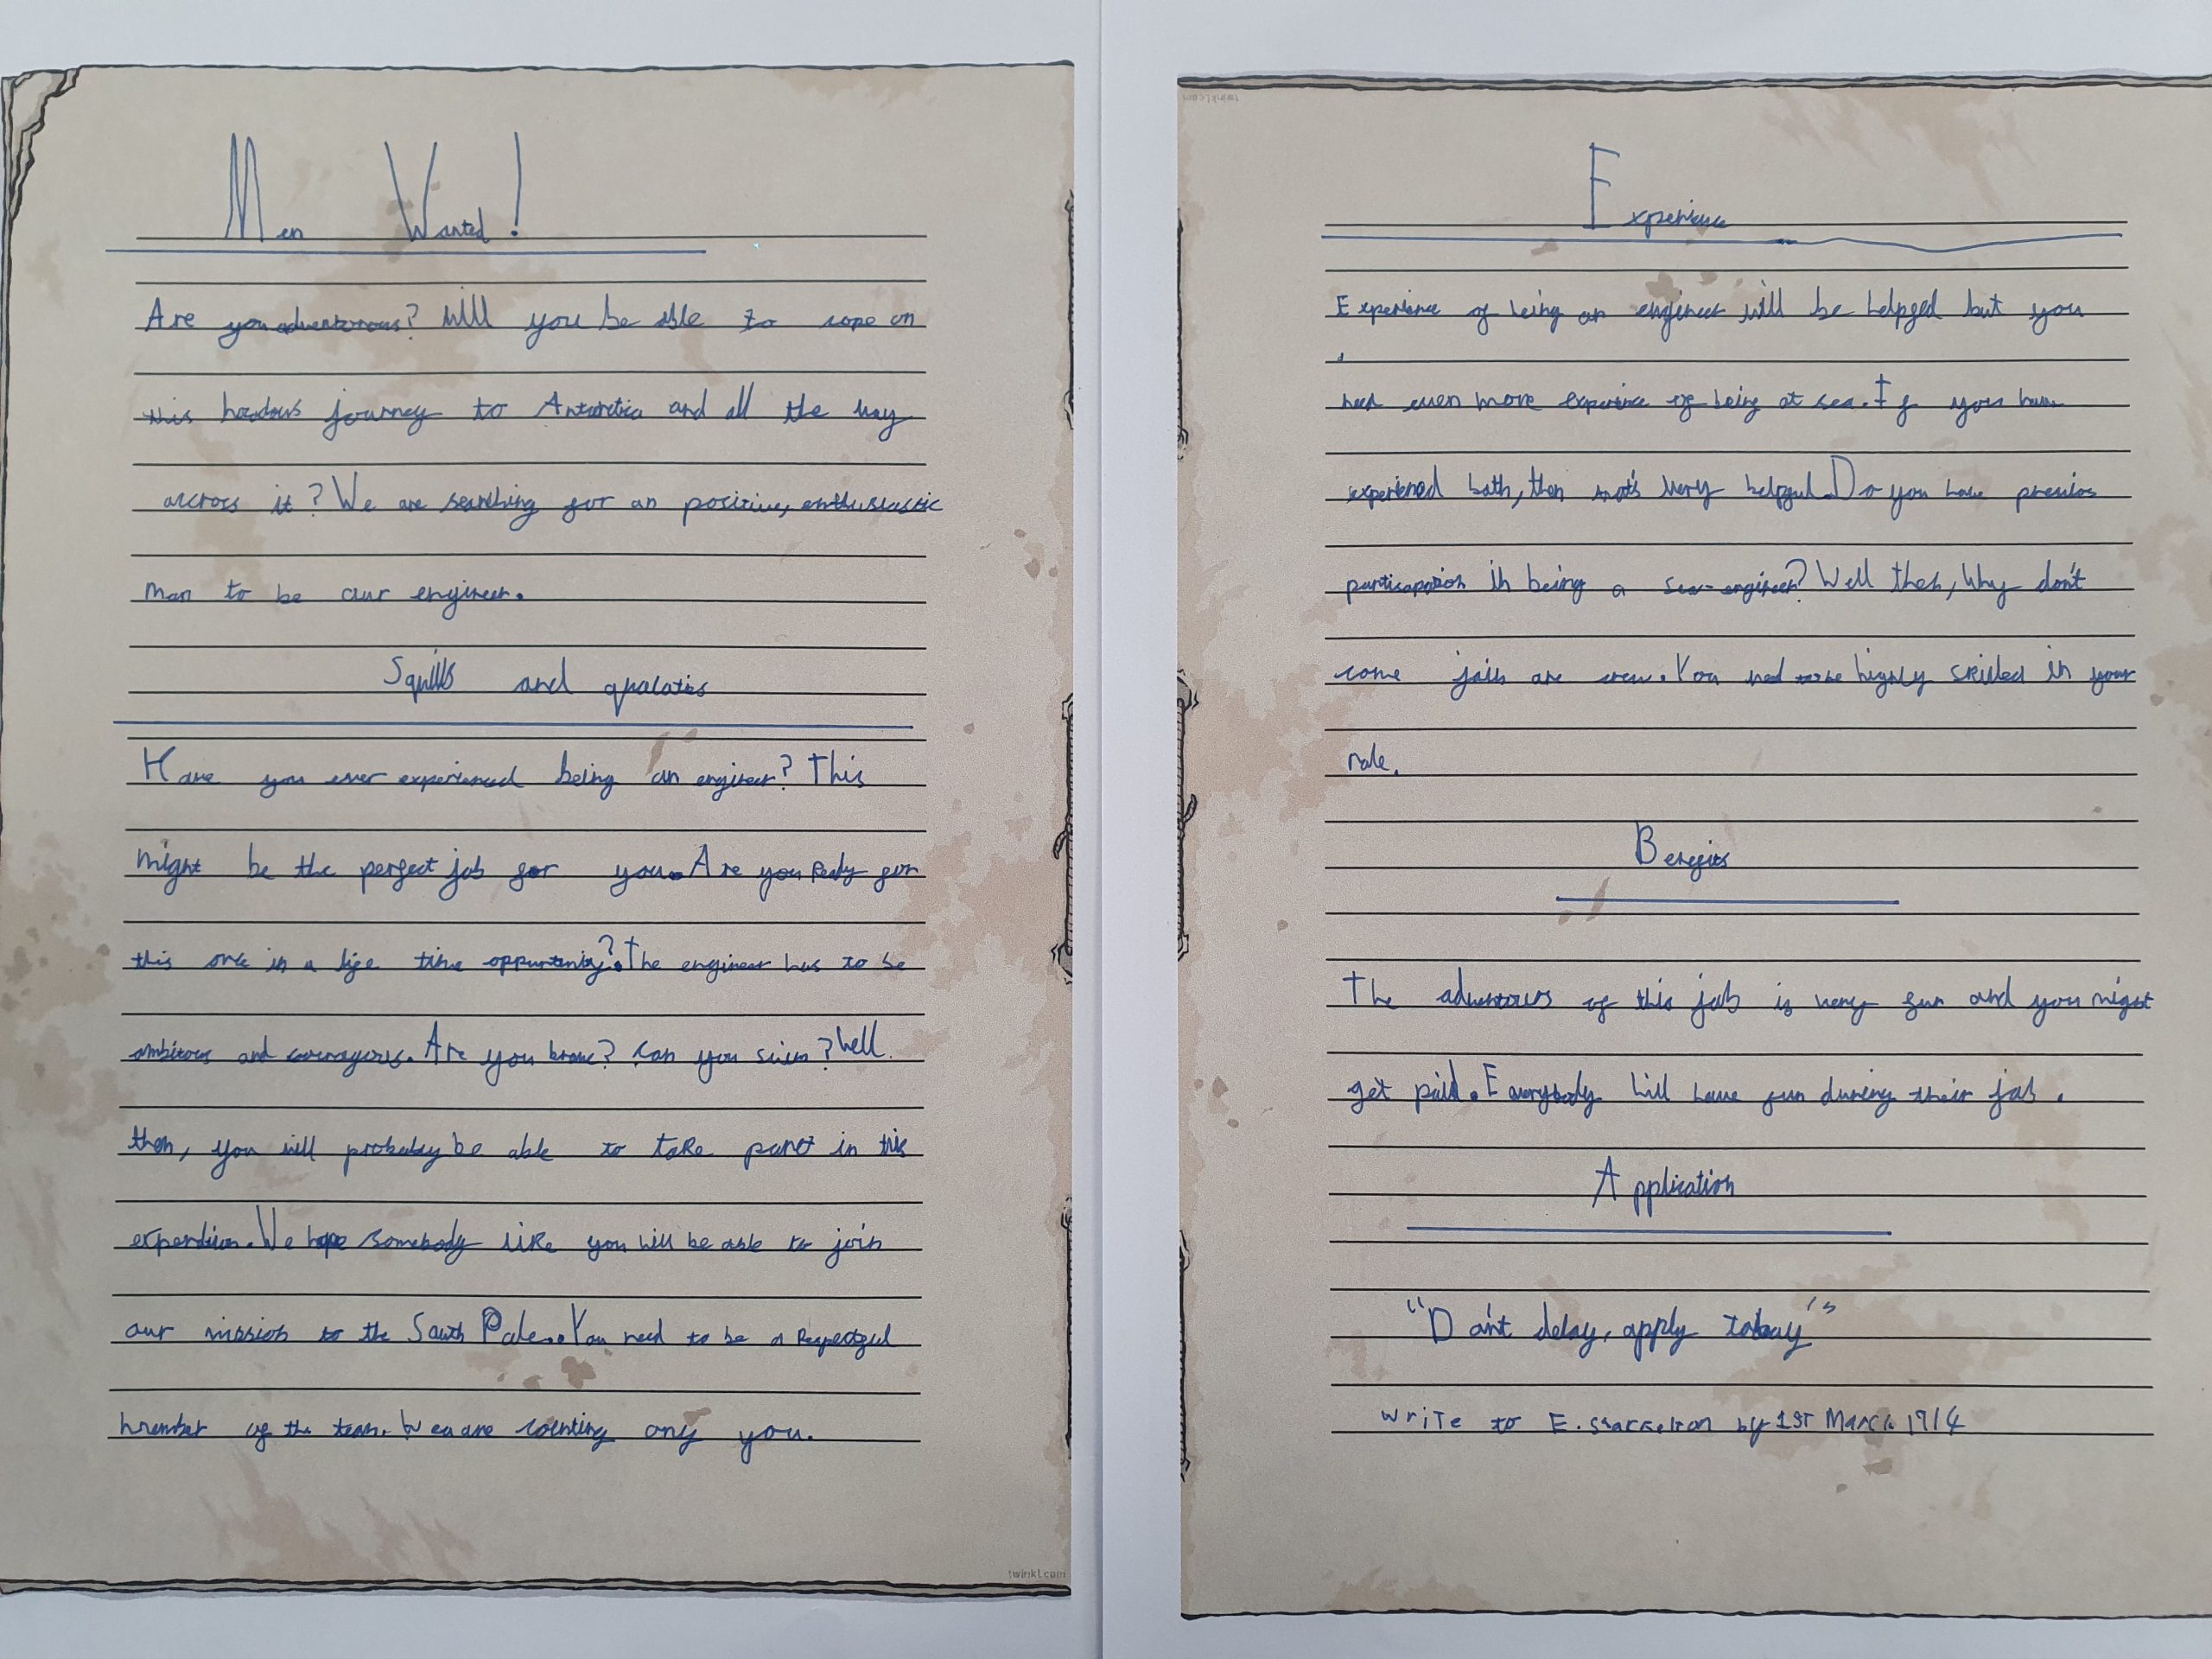 Men Wanted!
Are you adventorous? Will you be able to cope on
this hazadous journey to Antarctica and all the way
accross it? We are searching for an positive, enthusiastic
man to be our engineer.
Squills and qualaties
Have you ever experienced being an engineer? This
might be the perfect job for you. Are you Ready for
this once in a life time oppurtunity? The engineer has to be
ambitous and courageous. Are you brave? Can you swim? Well
then, you will probabay be able to take part in this
experdition. We hope somebody like you will be able to join
our mission to the South Pole. You need to be a Respectful
member of the team. We are counting on you.
twinkl.com
twinkl.com
Experience
Experience of being an engineer will be helpful but you
need even more experience of being at sea. If you have
experienced both, then that's very helpful. Do you have previos
partisapation in being a sea-engineer? Well then, Why don't
come join are crew. You need to be highly skilled in your
role.
Benefits
The adventours of this job is very fun and you might
get paid. Everybody will have fun during their job.
Application
"Don't delay, apply today"
Write to E. Shackelton by 1ST March 1914